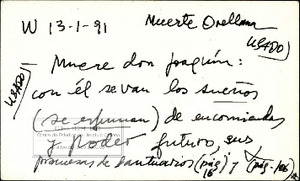 W 13-1-91 Muerte Orellana
USADO
Muere don Joaquín:
USADO
con él se van los sueños
(se esfuman) de encomiendas
y poder futuro, sus
promesas de santuarios (pág 16) y (pág.